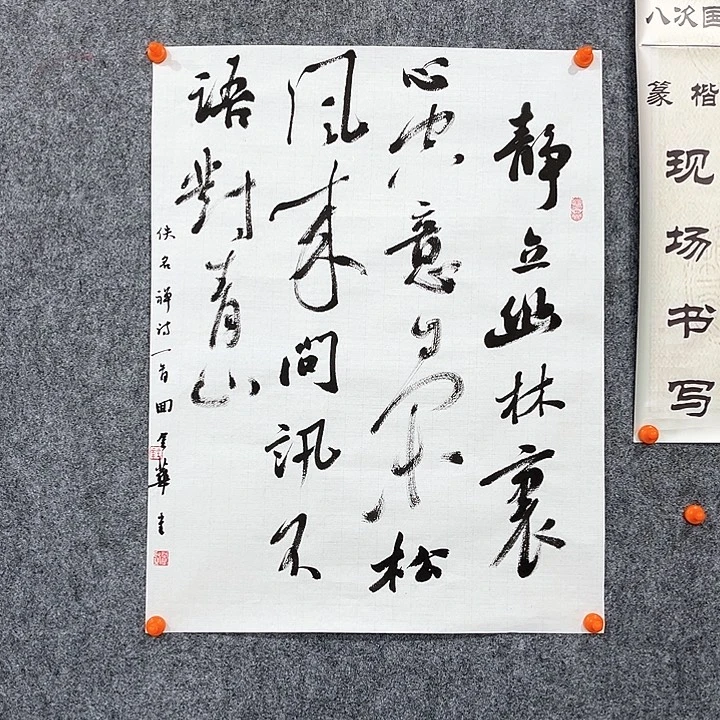 静立幽林裏
心空意自閑松
風来問訊不
語對青山
佚名禅诗一首 金華書
八次国
篆 楷
现场书写